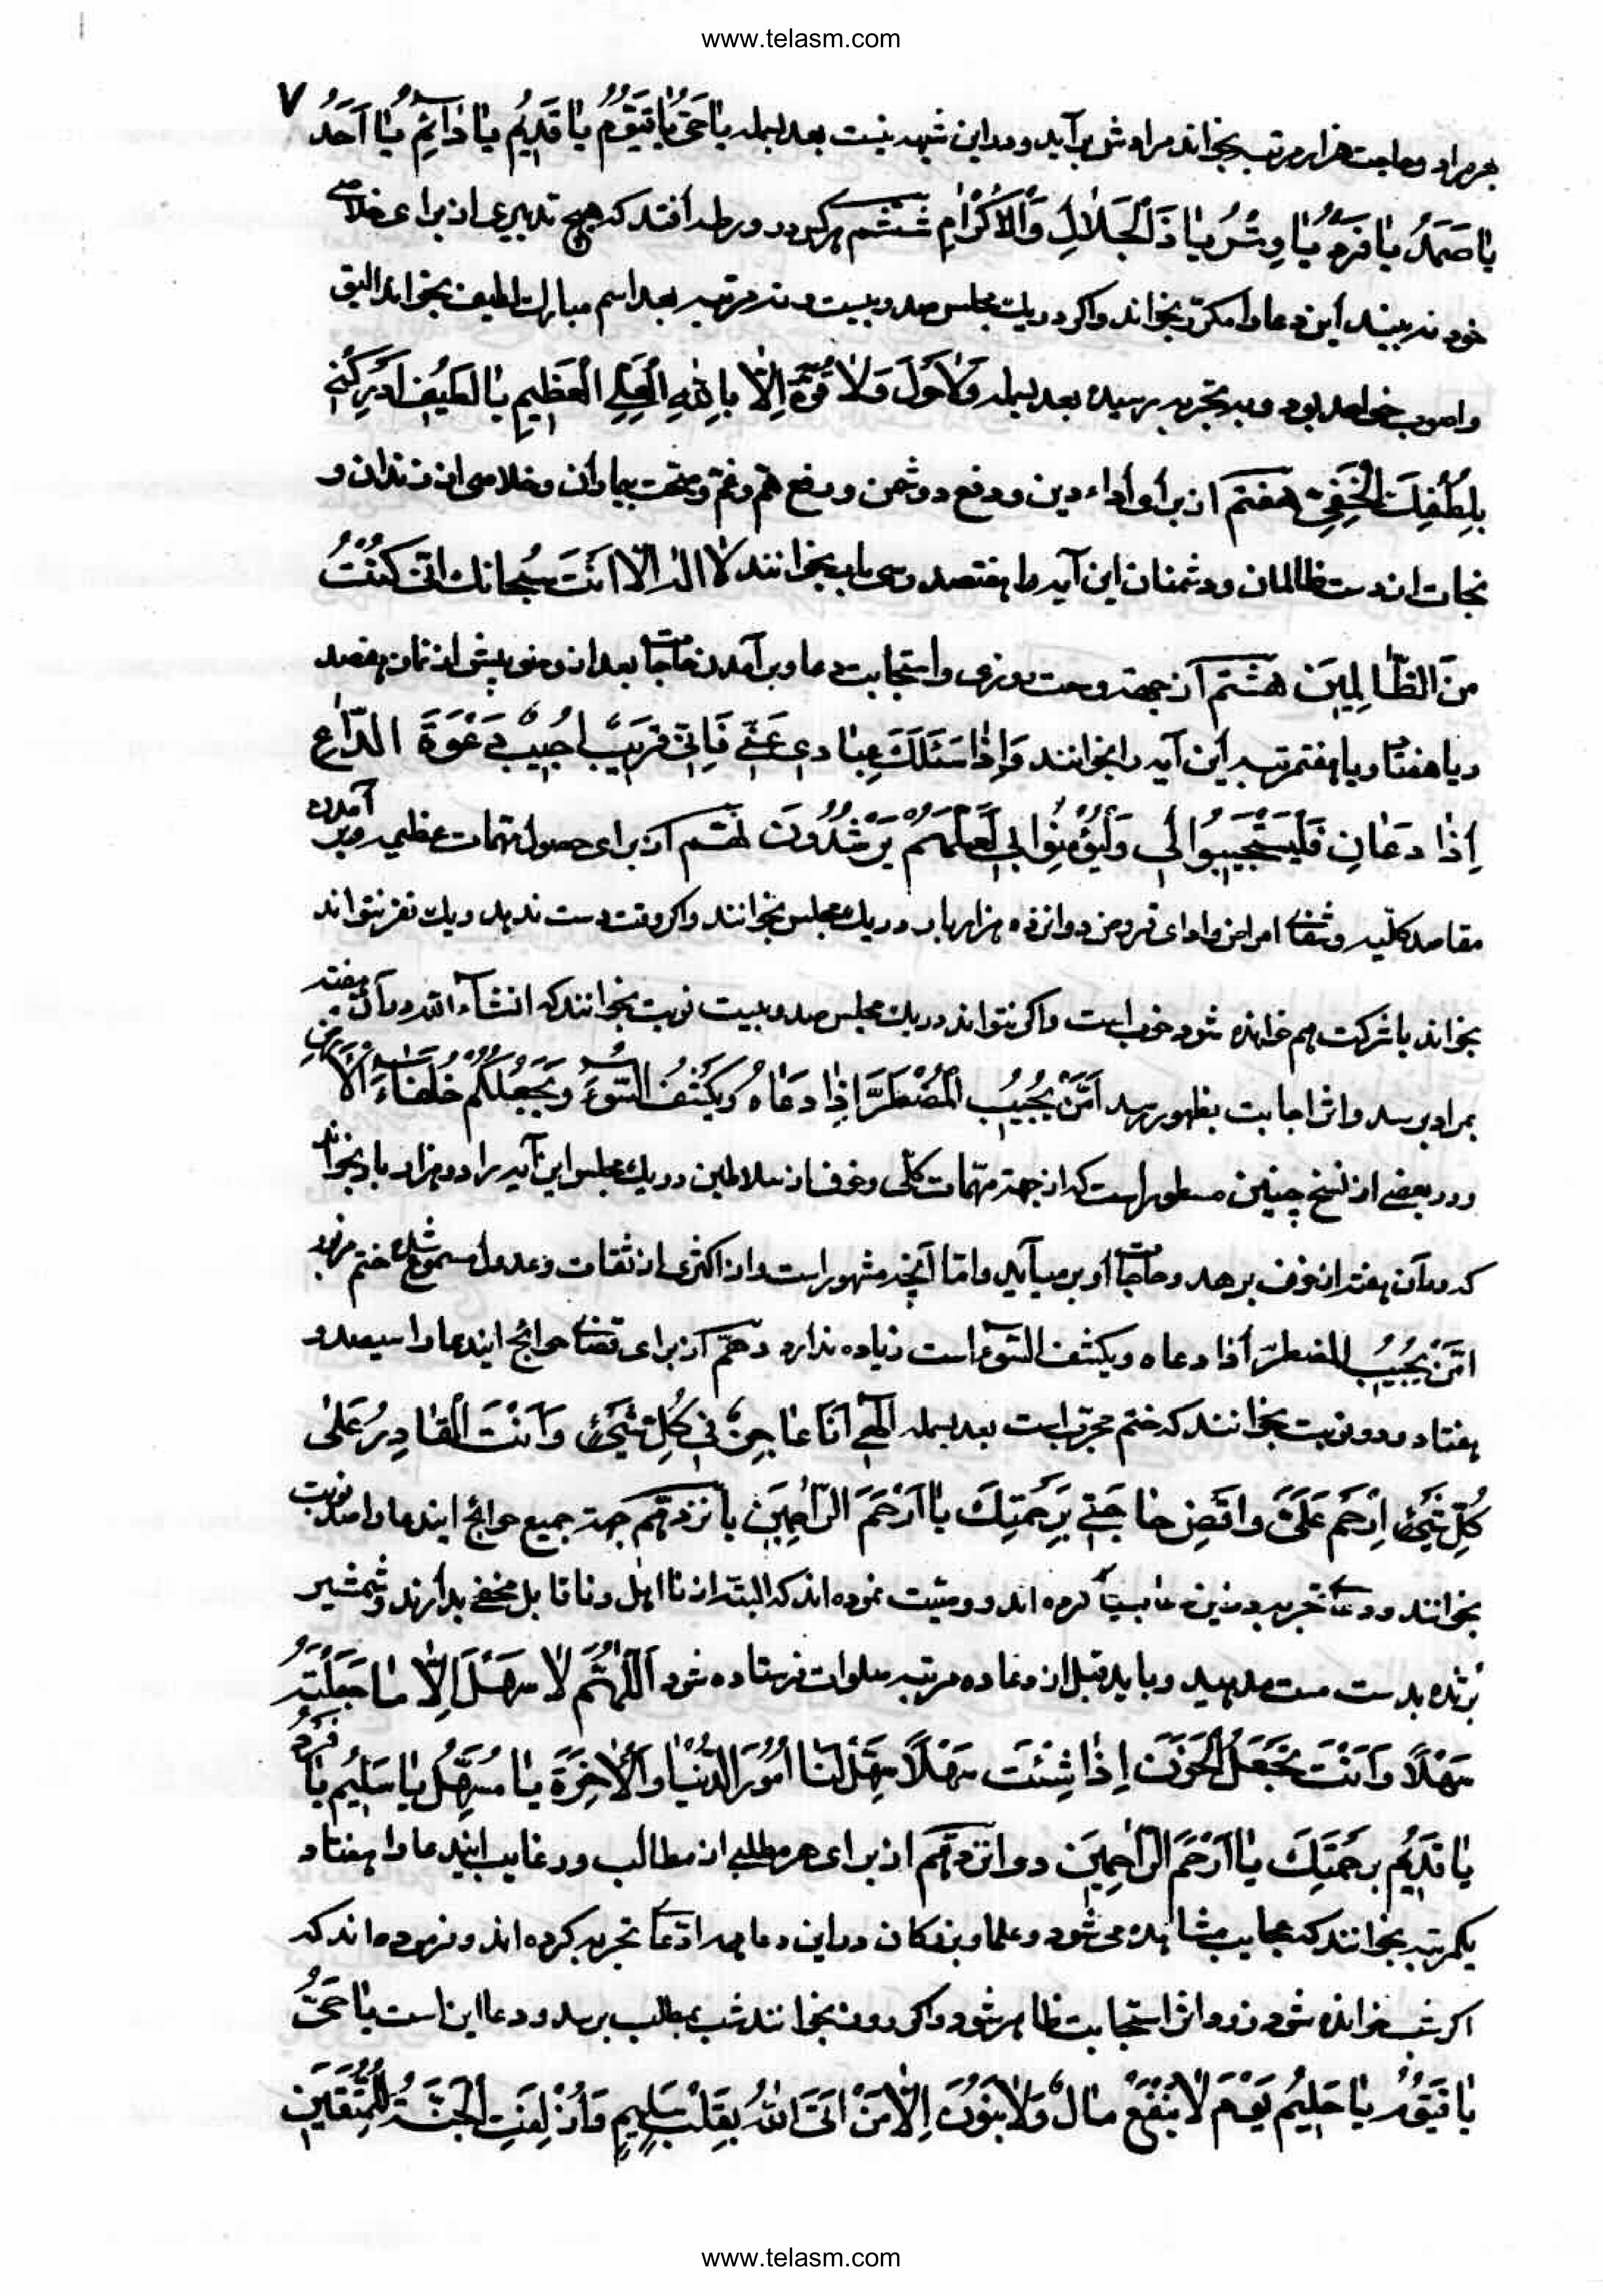 www.telasm.com
۷
هر مراد و حاجت هزار مرتبه بخواند مرادش برآید و در این شبهه نیست بعد بسمله یا حَیُّ یا قَیُّومُ یا قَدِیمُ یا دائِمُ یا اَحَدُ
یا صَمَدُ یا فَرْدُ یا وِتْرُ یا ذَالْجَلالِ وَالْاِکْرامِ ششم هرکس در ورطه افتد که هیچ تدبیری از برای خلاصی
خود نه بیند این دعا را مکرّر بخواند و اگر در یک مجلس صد و بیست و نه مرتبه بعد اسم مبارک لطیف بخواند الیق
و اصوب خواهد بود و به تجربه رسیده بعد بسمله وَلاحَوْلَ وَلا قُوَّةَ اِلّا بِاللهِ الْعَلِیِّ الْعَظِیمِ یا لَطیفُ اَدْرِکْنی
بِلُطْفِکَ الْخَفِیِّ هفتم از برای أداء دین و دفع دوشمن و رفع همّ و غم و صحّت بیماران و خلاصی از زندان و
نجات از دست ظالمان و دشمنان این آیه را هفتصد و سی بار بخوانند لا اله الّا اَنْتَ سُبْحانَکَ اِنّی کُنْتُ
مِنَ الظّالِمِینَ هشتم از جهة وسعت روزی و استجابت دعا و برآمدن حاجات بعد از وضو پیش از نماز هفصد
و یا هفتاد و یا هفتمرتبه این آیه را بخوانند وَاِذا سَئَلَکَ عِبادی عَنّی فَاِنّی قَریبٌ اُجیبُ دَعْوَةَ الدّاعِ
اِذا دَعانِ فَلْیَسْتَجیبُوا لی وَلْیُؤْمِنُوا بی لَعَلَّهُمْ یَرْشُدُونَ نهم از برای حصول مهمات عظیمه و بر آمدن
مقاصد کلّیه و شفاء امراض و ادای قروض دوازده هزار بار در یک مجلس بخوانند و اگر وقت دست ندهد و یک نفر نتواند
بخواند با شرکت هم خوانده شود خوب است و اگر نتواند در یک مجلس صد و بیست نوبت بخوانند که انشآء الله در آن هفته
بمراد برسد و اثر اجابت بظهور رسد اَمَّنْ یُجیبُ الْمُضْطَرَّ اِذا دَعاهُ وَیَکْشِفُ السُّوءَ وَیَجْعَلُکُمْ خُلَفاءَ الْاَرْضِ
و در بعضی از نسخ چنین مسطور است که از جهة مهمّات کلّی و خوف از سلاطین در یک مجلس این آیه را دو هزار بار بخواند
که در آن هفته از خوف برهد و حاجات او بر میآید و امّا آنچه مشهور است و از اکثری از ثقات و عدول مسموع شده ختم مزبور
امّن یُجیبُ المضطرّ اذا دعاه و یکشف السّوء است زیاده ندارد دهم از برای قضاء حوائج ایندعا را سیصد و
هفتاد و دو نوبت بخوانند که ختم مجرّب است بعد بسمله اِلهی اَنَا عاجِزٌ فی کُلِّ شَیْءٍ وَاَنْتَ الْقادِرُ عَلی
کُلِّ شَیْءٍ اِرْحَمْ عَلَیَّ وَاقْضِ حاجَتی بِرَحْمَتِکَ یا اَرْحَمَ الرّاحِمینَ یازدهم جهة جمیع حوائج ایندعا را صد نوبت
بخوانند و تجربه در این دعا بسیار کرده اند و وصیّت نموده اند که البته از نا اهل و نا قابل مخفی بدارند و شمشیر
برنده بدست مست مدهید و باید قبل از دعا ده مرتبه صلوات فرستاده شود اَللّهُمَّ لا سَهْلَ اِلّا ما جَعَلْتَهُ
سَهْلًا وَاَنْتَ تَجْعَلُ الْحَزَنَ اِذا شِئْتَ سَهْلًا سَهِّلْ لَنا اُمُورَ الدُّنْیا وَالْاخِرَةِ یا مُسَهِّلُ یا سَلیمُ یا فَرْدُ
یا قَدیمُ بِرَحْمَتِکَ یا اَرْحَمَ الرّاحِمینَ دوازدهم از برای هر مطلبی از مطالب و رغایب ایندعا را هفتاد و
یکمرتبه بخوانند که عجایب مشاهده می شود و علما و بزرکان در این دعا تجربه کرده اند و فرموده اند که
اگر شب خوانده شود روز اثر استجابت ظاهر شود و اگر روز بخوانند شب بمطلب برسد و دعا این است یا حَیُّ
یا قَیُّومُ یا حَلیمُ یَوْمَ لا یَنْفَعُ مالٌ وَلا بَنُونَ اِلّا مَنْ اَتَی اللهَ بِقَلْبٍ سَلیمٍ وَاُزْلِفَتِ الْجَنَّةُ لِلْمُتَّقینَ
www.telasm.com